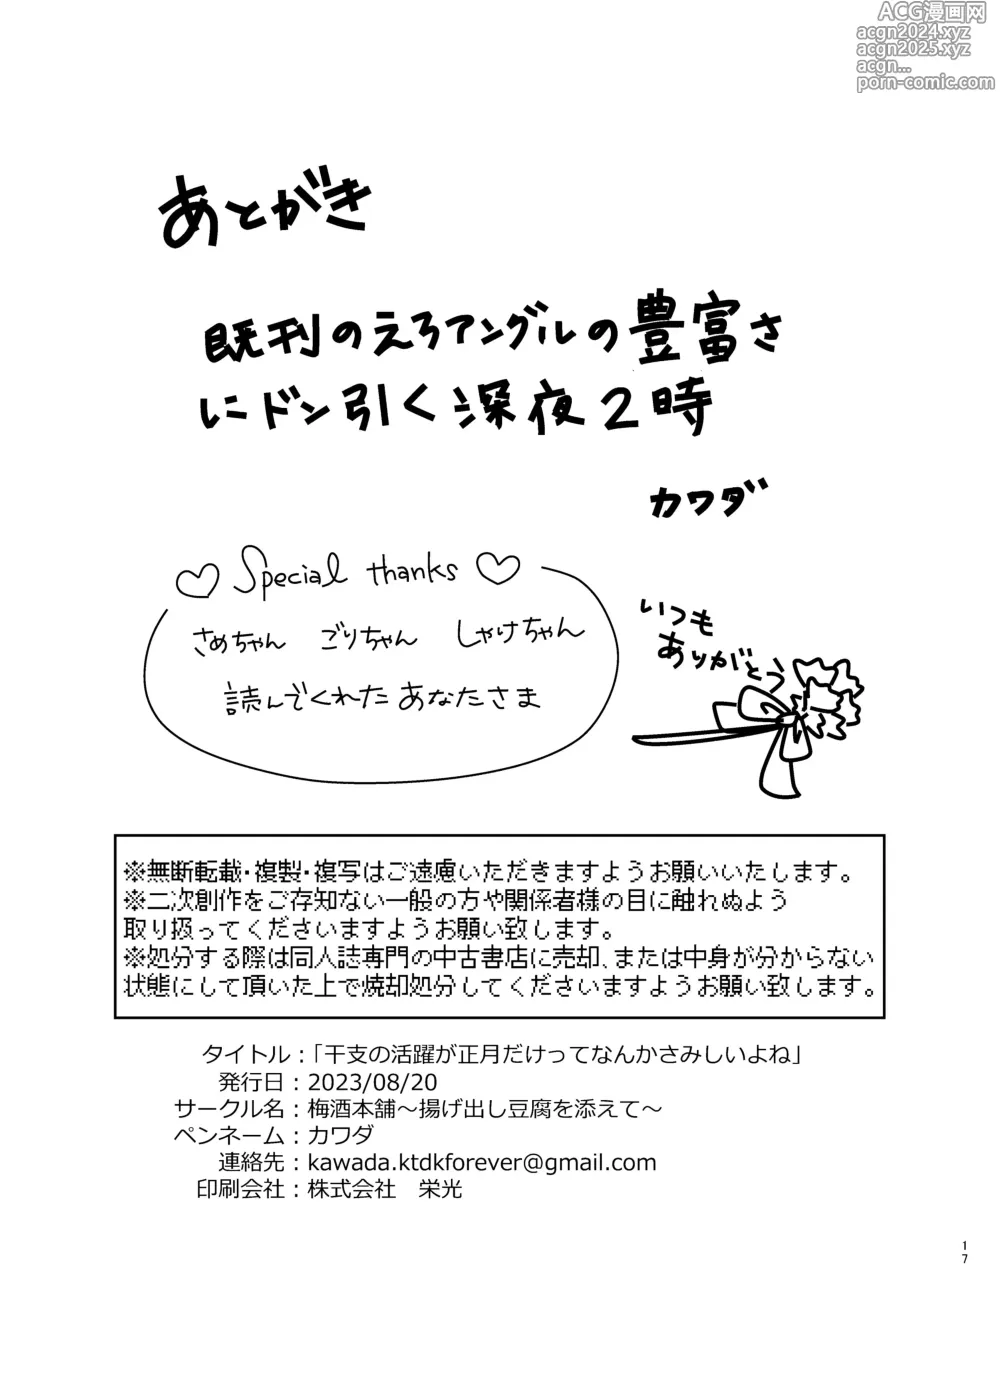 ACG漫画网
acgn2024.xyz
acgn2025.xyz
acgn...
porn-comic.com
あとがき
既刊のえろアングルの豊富さ
にドン引く深夜2時
カワダ
Special thanks
さめちゃん ごりちゃん しゃけちゃん
読んでくれたあなたさま
いつも
ありがとう
※無断転載・複製・複写はご遠慮いただきますようお願いいたします。
※二次創作をご存知ない一般の方や関係者様の目に触れぬよう
取り扱ってくださいますようお願い致します。
※処分する際は同人誌専門の中古書店に売却、または中身が分からない
状態にして頂いた上で焼却処分してくださいますようお願い致します。
タイトル：「干支の活躍が正月だけってなんかさみしいよね」
発行日：2023/08/20
サークル名：梅酒本舗～揚げ出し豆腐を添えて～
ペンネーム：カワダ
連絡先：kawada.ktdkforever@gmail.com
印刷会社：株式会社　栄光
17